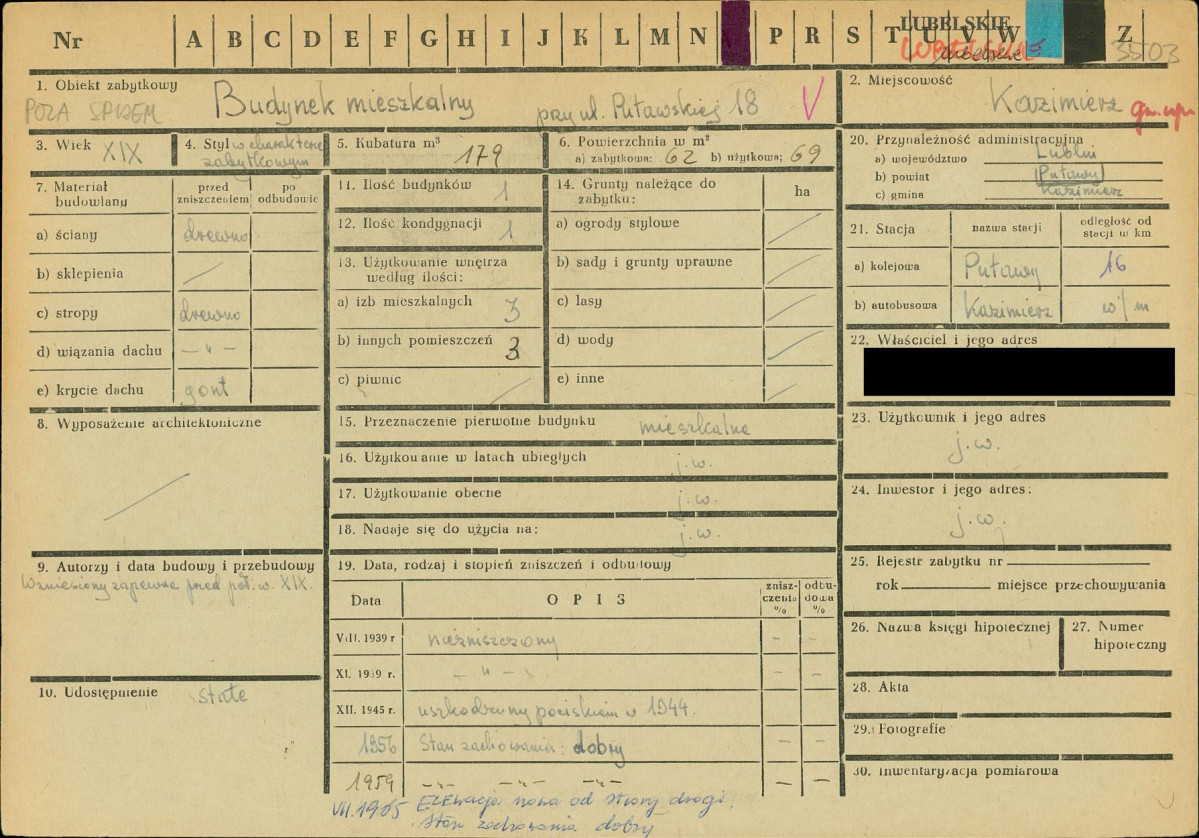 Nr A B C D E F G H I J K L M N P R S T U V W Z
LUBELSKIE
LUBELSKIE
3503
1. Obiekt zabytkowy
POZA SPISEM
Budynek mieszkalny przy ul. Puławskiej 18 V
2. Miejscowość
Kazimierz
3. Wiek XIX
4. Styl w charakterze
zabytkowym
5. Kubatura m³
179
6. Powierzchnia w m²
a) zabytkowa: 62 b) użytkowa; 69
7. Materiał budowlany
przed zniszczeniem
po odbudowie
a) ściany drewno
b) sklepienia
c) stropy drewno
d) wiązania dachu — „ —
e) krycie dachu gont
8. Wyposażenie architektoniczne
9. Autorzy i data budowy i przebudowy
Wzniesiony zapewne przed poł. w. XIX.
10. Udostępnienie stałe
11. Ilość budynków 1
12. Ilość kondygnacji 1
13. Użytkowanie wnętrza
według ilości:
a) izb mieszkalnych 3
b) innych pomieszczeń 3
c) piwnic
14. Grunty należące do
zabytku:
ha
a) ogrody stylowe
b) sady i grunty uprawne
c) lasy
d) wody
e) inne
15. Przeznaczenie pierwotne budynku mieszkalne
16. Użytkowanie w latach ubiegłych j.w.
17. Użytkowanie obecne j.w.
18. Nadaje się do użycia na: j.w.
19. Data, rodzaj i stopień zniszczeń i odbudowy
Data
OPIS
znisz-
czenia
%
odbu-
dowa
%
VIII. 1939 r niezniszczony – –
XI. 1939 r. – „ – –
XII. 1945 r. uszkodzony pociskiem w 1944.
1956 Stan zachowania: dobry – –
1959 –„– –„– –„– – –
VII. 1965 Elewacja nowa od strony drogi.
Stan zachowania dobry
20. Przynależność administracyjna
a) województwo Lublin
b) powiat Puławy
c) gmina Kazimierz
21. Stacja
nazwa stacji
odległość od
stacji w km
a) kolejowa Puławy 16
b) autobusowa Kazimierz w/m
22. Właściciel i jego adres
23. Użytkownik i jego adres
j.w.
24. Inwestor i jego adres:
j.w.
25. Rejestr zabytku nr
rok miejsce przechowywania
26. Nazwa księgi hipotecznej
27. Numer
hipoteczny
28. Akta
29. Fotografie
30. Inwentaryzacja pomiarowa